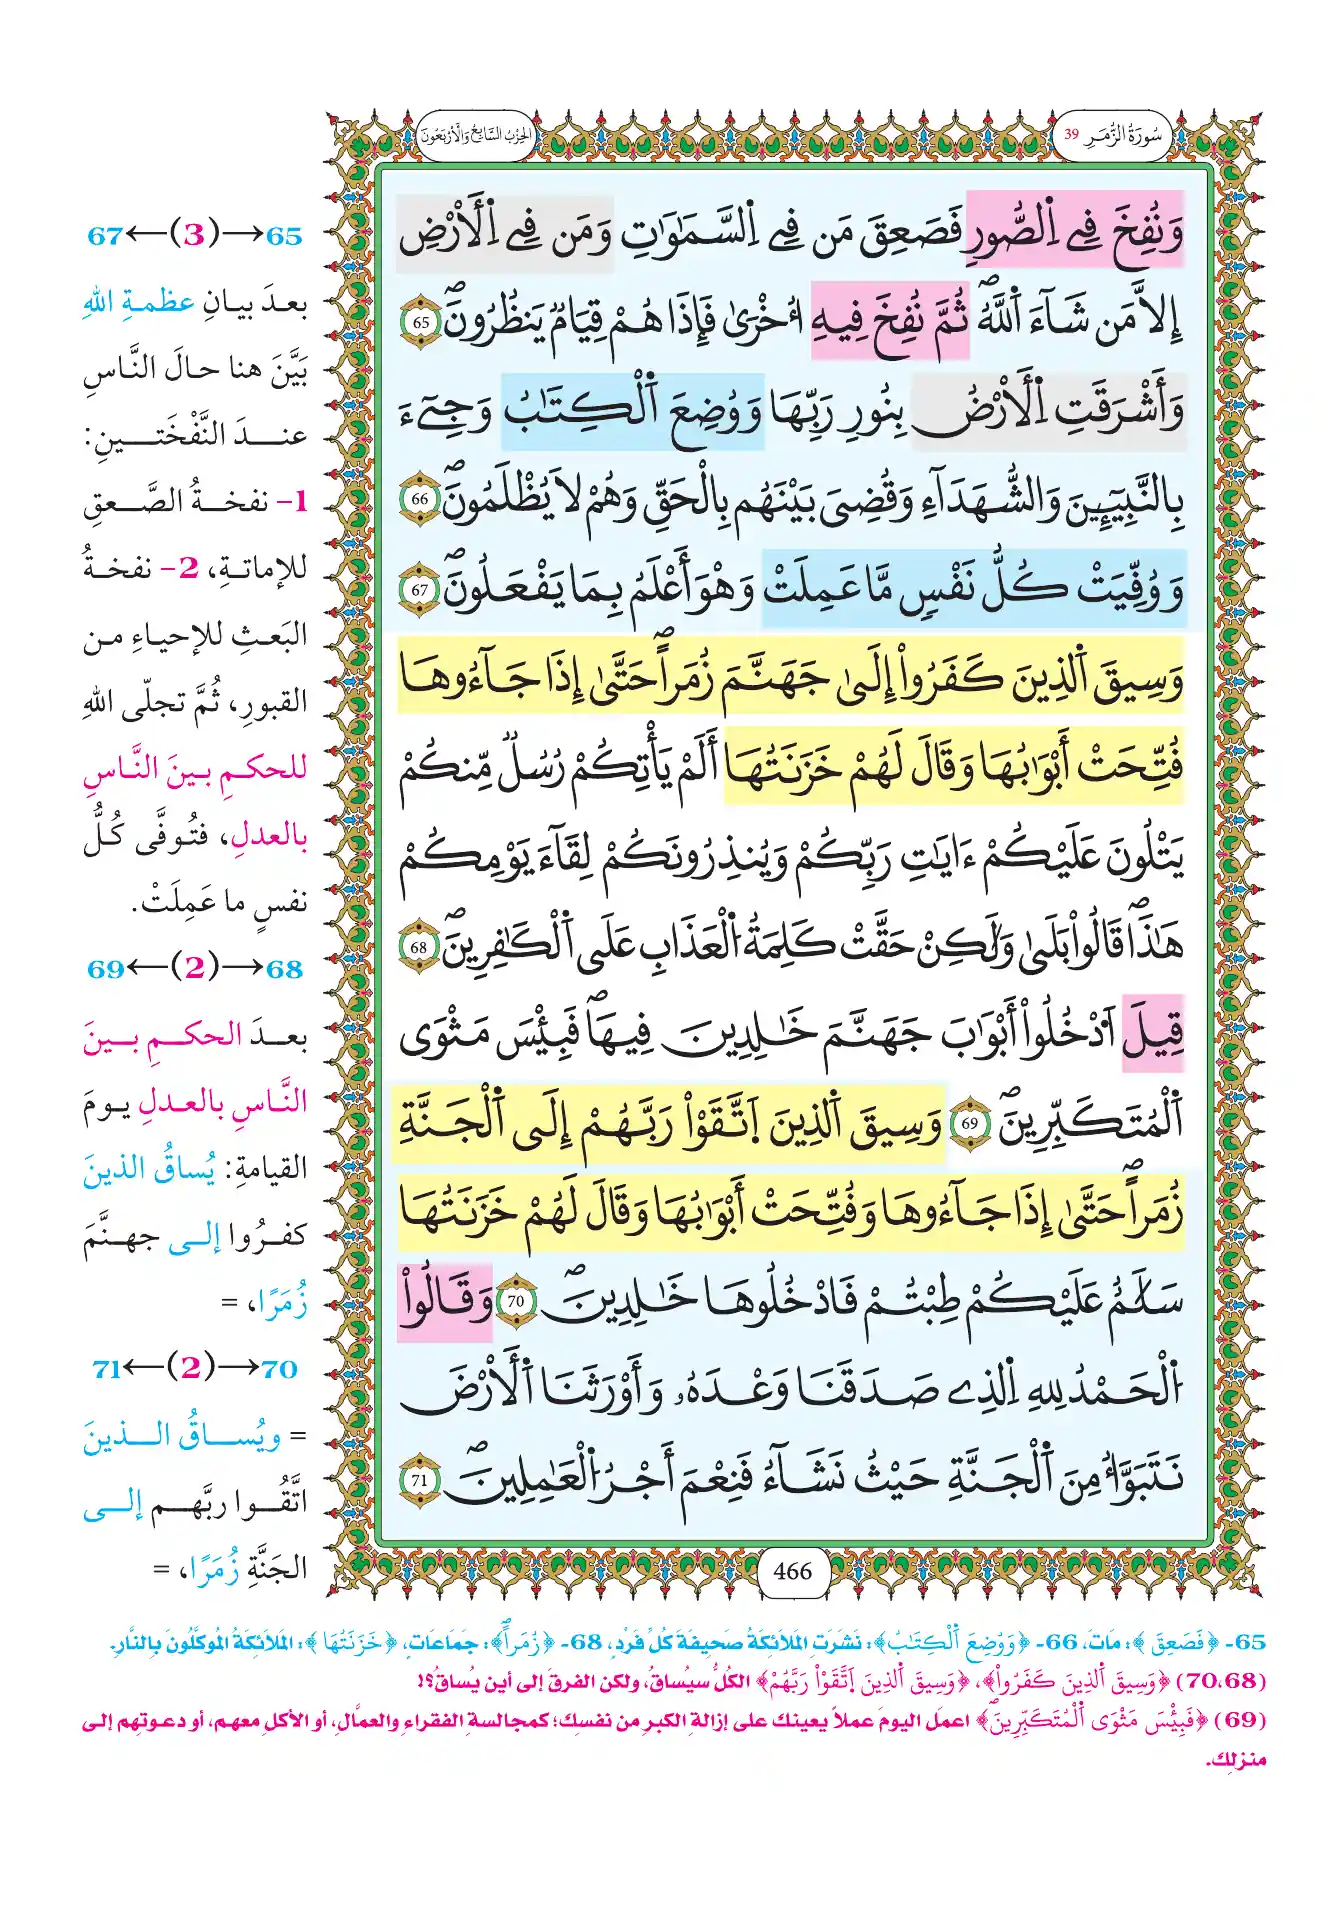 سُورَةُ الزُّمَرِ 39
الحِزْبُ السَّابِعُ وَالأَرْبَعُونَ
وَنُفِخَ فِے اِ۬لصُّورِ فَصَعِقَ مَن فِے اِ۬لسَّمَٰوَٰتِ وَمَن فِے اِ۬لَارْضِ
إِلَّا مَن شَآءَ اَ۬للَّهُۖ ثُمَّ نُفِخَ فِيهِ أُخْر۪يٰ فَإِذَا هُمْ قِيَامٞ يَنظُرُونَۖ 65
وَأَشْرَقَتِ اِ۬لَارْضُ بِنُورِ رَبِّهَا وَوُضِعَ اَ۬لْكِتَٰبُ وَجِےٓءَ
بِالنَّبِيٓـِٕينَ وَالشُّهَدَآءِ وَقُضِيَ بَيْنَهُم بِالْحَقِّ وَهُمْ لَا يُظْلَمُونَۖ 66
وَوُفِّيَتْ كُلُّ نَفْسٖ مَّا عَمِلَتْ وَهْوَ أَعْلَمُ بِمَا يَفْعَلُونَۖ 67
وَسِيقَ اَ۬لذِينَ كَفَرُوٓاْ إِلَىٰ جَهَنَّمَ زُمَراًۖ حَتَّىٰ إِذَا جَآءُوهَا
فُتِّحَتْ أَبْوَٰبُهَا وَقَالَ لَهُمْ خَزَنَتُهَا أَلَمْ يَأْتِكُمْ رُسُلٞ مِّنكُمْ
يَتْلُونَ عَلَيْكُمْ ءَايَٰتِ رَبِّكُمْ وَيُنذِرُونَكُمْ لِقَآءَ يَوْمِكُمْ
هَٰذَاۖ قَالُواْ بَلَىٰ وَلَٰكِنْ حَقَّتْ كَلِمَةُ اُ۬لْعَذَابِ عَلَى اَ۬لْكٰ۪فِرِينَۖ 68
قِيلَ اَ۟دْخُلُوٓاْ أَبْوَٰبَ جَهَنَّمَ خَٰلِدِينَ فِيهَاۖ فَبِئْسَ مَثْوَى
اَ۬لْمُتَكَبِّرِينَۖ 69 وَسِيقَ اَ۬لذِينَ اَ۪تَّقَوْاْ رَبَّهُمْ إِلَى اَ۬لْجَنَّةِ
زُمَراًۖ حَتَّىٰ إِذَا جَآءُوهَا وَفُتِّحَتْ أَبْوَٰبُهَا وَقَالَ لَهُمْ خَزَنَتُهَا
سَلَٰمٌ عَلَيْكُمْ طِبْتُمْ فَادْخُلُوهَا خَٰلِدِينَۖ 70 وَقَالُواْ
اُ۬لْحَمْدُ لِلهِ اِ۬لذِے صَدَقَنَا وَعْدَهُۥ وَأَوْرَثَنَا اَ۬لَارْضَ
نَتَبَوَّأُ مِنَ اَ۬لْجَنَّةِ حَيْثُ نَشَآءُ فَنِعْمَ أَجْرُ اُ۬لْعَٰمِلِينَۖ 71
466
65→(3)←67
بعدَ بيانِ عظمةِ اللهِ
بَيَّنَ هنا حالَ النَّاسِ
عندَ النَّفْختينِ:
1- نفخةُ الصَّعقِ
للإماتةِ، 2- نفخةُ
البَعثِ للإحياءِ من
القبورِ، ثُمَّ تجلّى اللهِ
للحكمِ بينَ النَّاسِ
بالعدلِ، فتُوفَّى كُلُّ
نفسٍ ما عَمِلَتْ.
68→(2)←69
بعدَ الحكمِ بينَ
النَّاسِ بالعدلِ يومَ
القيامةِ: يُساقُ الذينَ
كفرُوا إلى جهنَّمَ
زُمَرًا، =
70→(2)←71
= ويُساقُ الذينَ
اتَّقُوا ربَّهم إلى
الجَنَّةِ زُمَرًا، =
65- ﴿فَصَعِقَ﴾: مَاتَ، 66- ﴿وَوُضِعَ اَ۬لْكِتَٰبُ﴾: نَشَرَتِ المَلَائِكَةُ صَحِيفَةَ كُلِّ فَرْدٍ، 68- ﴿زُمَراًۖ﴾: جَمَاعَاتٍ، ﴿خَزَنَتُهَا﴾: المَلَائِكَةُ المُوَكَّلُونَ بِالنَّارِ.
(70،68) ﴿وَسِيقَ اَ۬لذِينَ كَفَرُوٓاْ﴾، ﴿وَسِيقَ اَ۬لذِينَ اَ۪تَّقَوْاْ رَبَّهُمْ﴾ الكلُّ سيُساقُ، ولكن الفرقَ إلى أين يُساقُ؟!
(69) ﴿فَبِئْسَ مَثْوَى اَ۬لْمُتَكَبِّرِينَۖ﴾ اعمل اليومَ عملاً يعينك على إزالةِ الكبرِ من نفسِك؛ كمجالسةِ الفقراءِ والعمَّالِ، أو الأكلِ معهم، أو دعوتهم إلى
منزلِك.